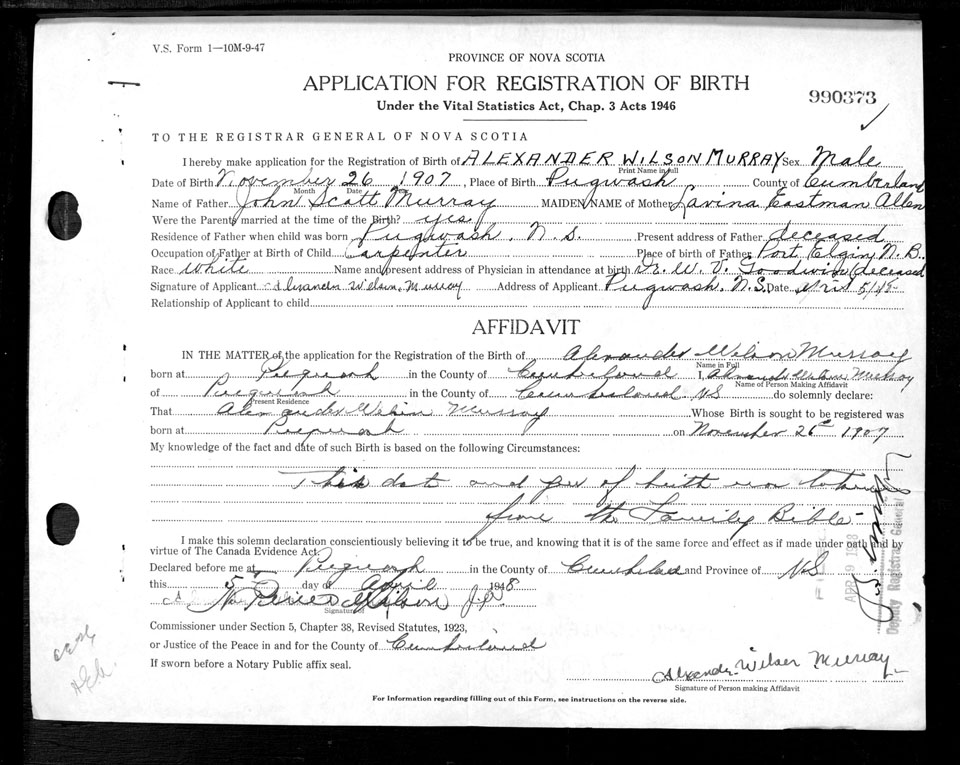 V.S. Form 1—10M-9-47
PROVINCE OF NOVA SCOTIA
APPLICATION FOR REGISTRATION OF BIRTH
990373
Under the Vital Statistics Act, Chap. 3 Acts 1946
TO THE REGISTRAR GENERAL OF NOVA SCOTIA
I hereby make application for the Registration of Birth of ALEXANDER WILSON MURRAY Sex Male
Print Name in Full
Date of Birth November 26 1907, Place of Birth Pugwash County of Cumberland
Month Date
Name of Father John Scott Murray MAIDEN NAME of Mother Lavina Eastman Allen
Were the Parents married at the time of the Birth? yes
Residence of Father when child was born Pugwash, N.S. Present address of Father deceased
Occupation of Father at Birth of Child Carpenter Place of birth of Father Port Elgin N.B.
Race White Name and present address of Physician in attendance at birth Dr. W. V. Goodwin (deceased
Signature of Applicant Alexander Wilson Murray Address of Applicant Pugwash, N.S. Date April 5/48
Relationship of Applicant to child
AFFIDAVIT
IN THE MATTER of the application for the Registration of the Birth of Alexander Wilson Murray
Name in Full
born at Pugwash in the County of Cumberland I, Alexander Wilson Murray
Name of Person Making Affidavit
of Pugwash in the County of Cumberland NS do solemnly declare:
Present Residence
That Alexander Wilson Murray Whose Birth is sought to be registered was
born at Pugwash on November 26th 1907
My knowledge of the fact and date of such Birth is based on the following Circumstances:
This date and of birth was taken
from the Family Bible
I make this solemn declaration conscientiously believing it to be true, and knowing that it is of the same force and effect as if made under oath and by
virtue of The Canada Evidence Act.
Declared before me at Pugwash in the County of Cumberland and Province of NS
this 5 day of April 1948
J.P.
Signature of
Commissioner under Section 5, Chapter 38, Revised Statutes, 1923,
or Justice of the Peace in and for the County of Cumberland
If sworn before a Notary Public affix seal.
Alexander Wilson Murray
Signature of Person making Affidavit
For Information regarding filling out of this Form, see instructions on the reverse side.
Deputy Registrar General